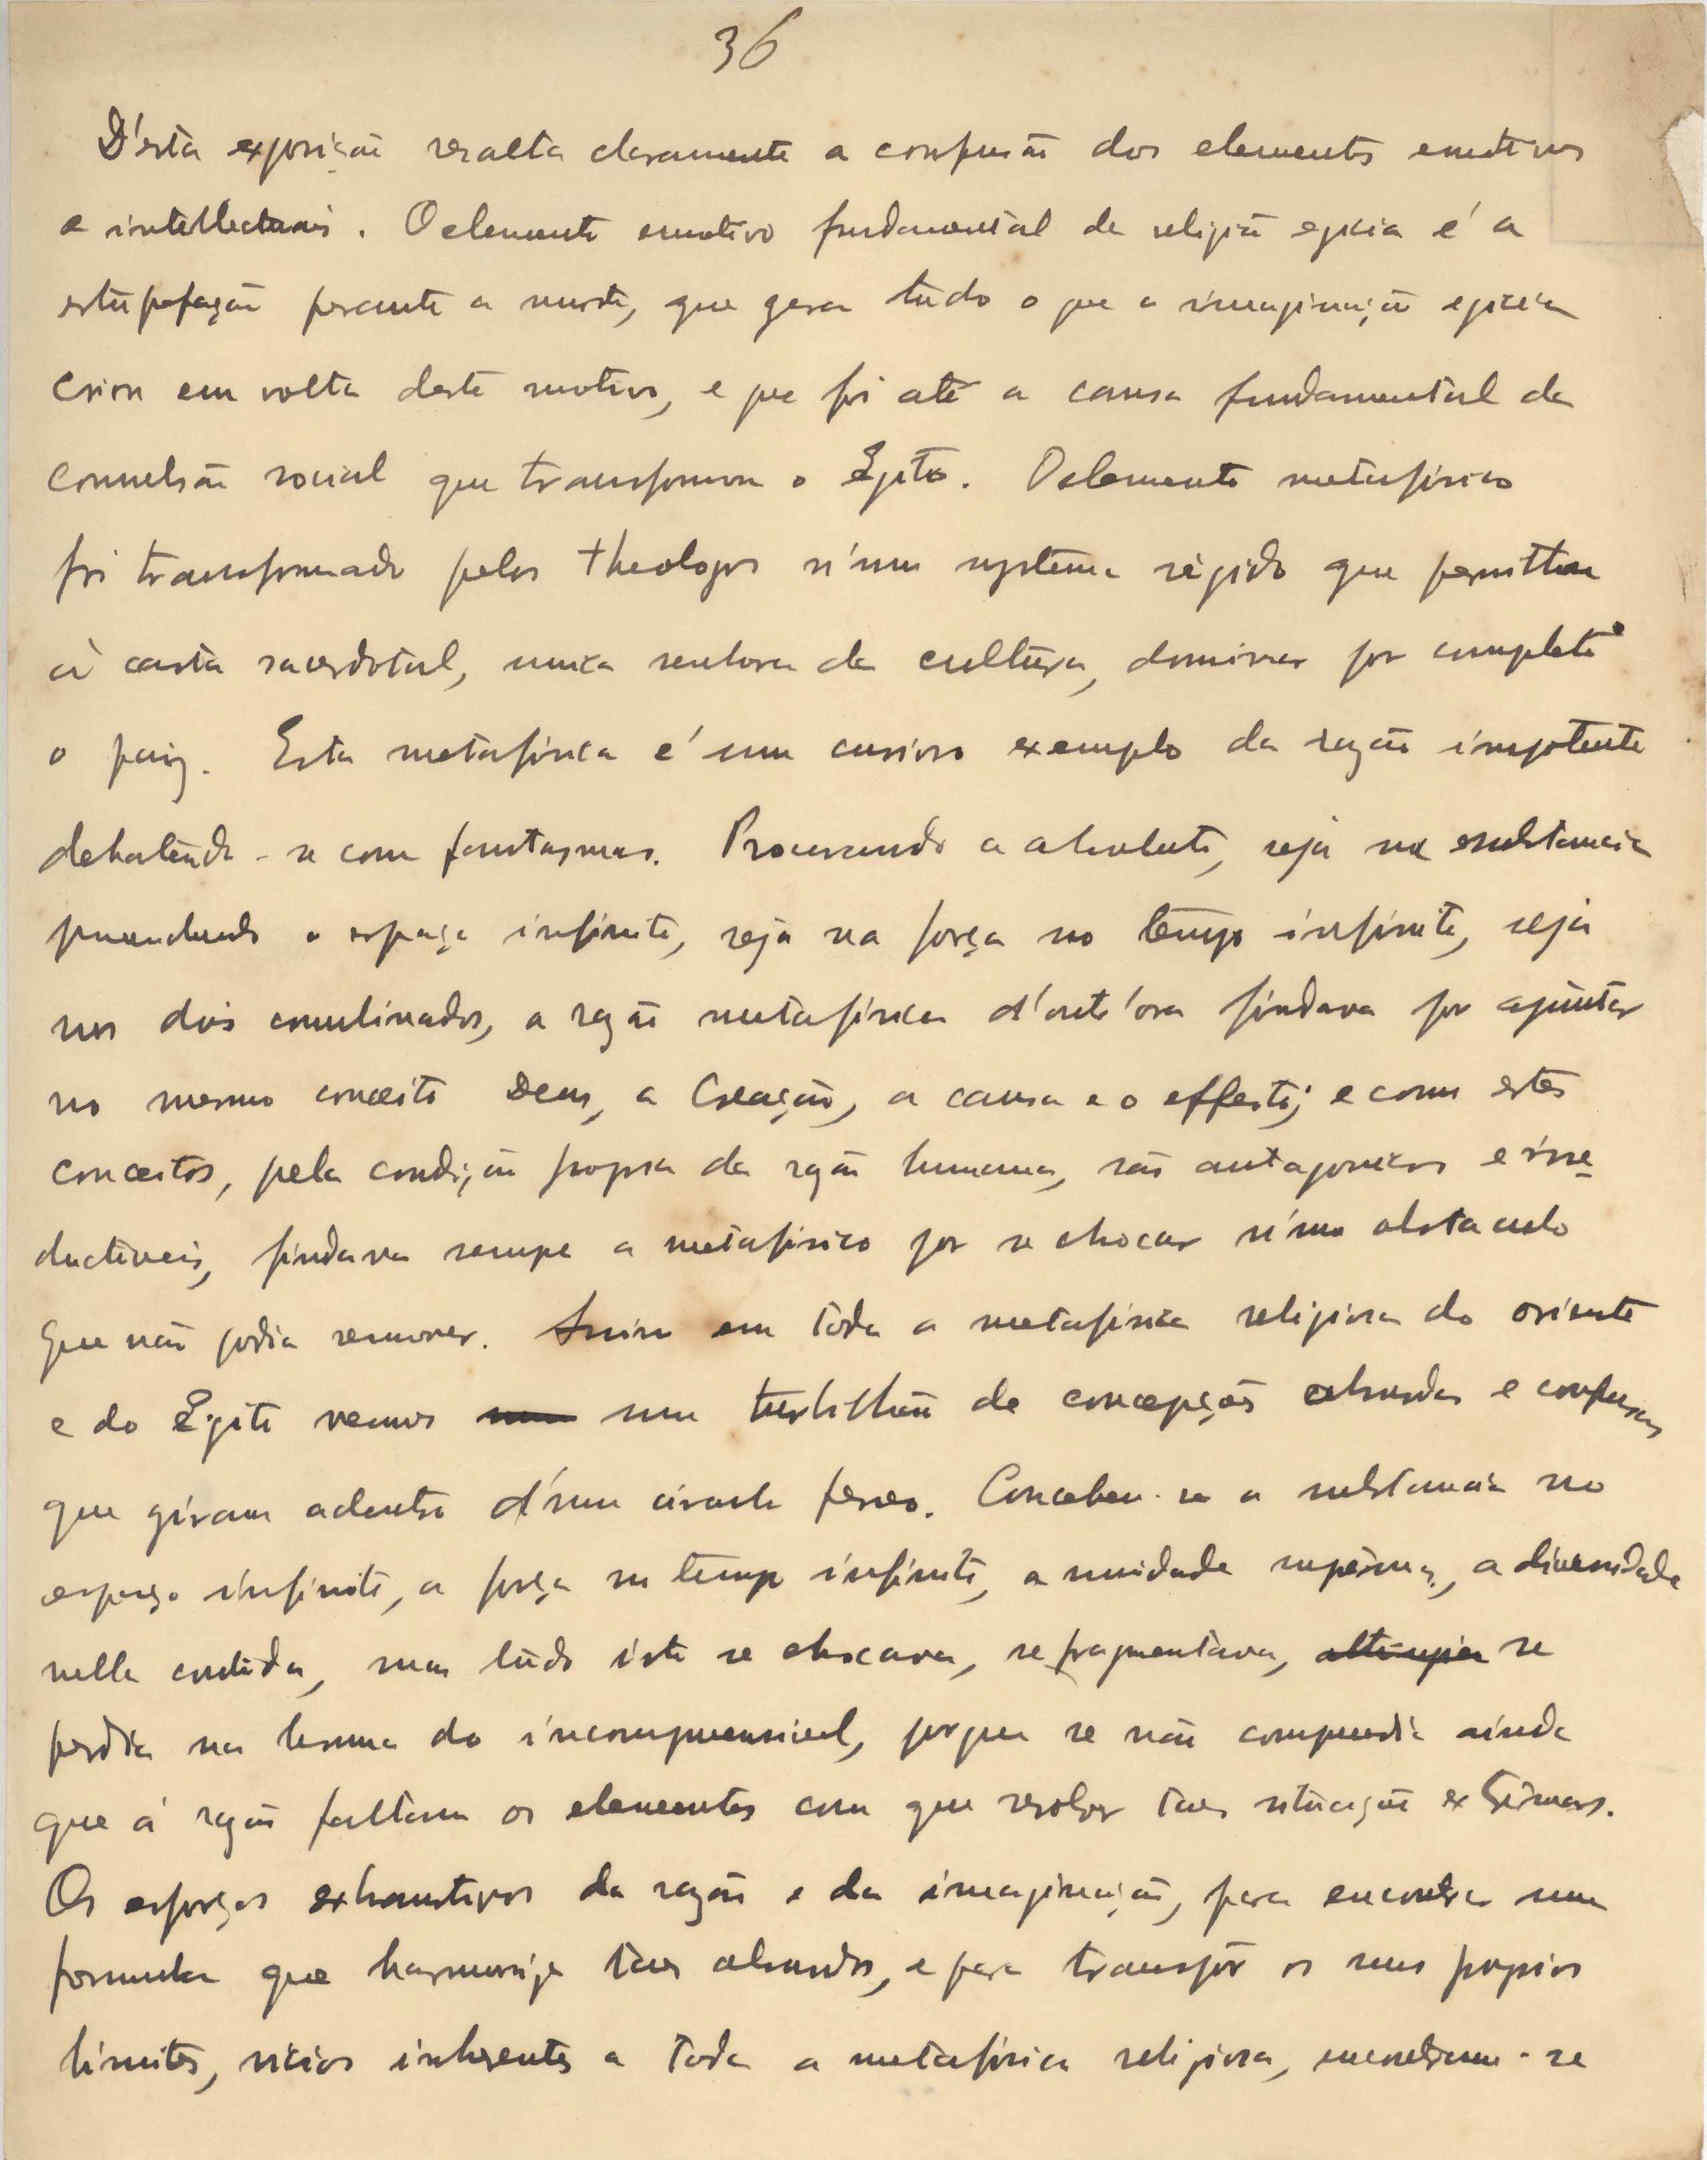 36
D'esta exposição resalta claramente a confusão dos elementos emotivos
e intellectuais. O elemento emotivo fundamental da religião egicia é a
estupefação perante a morte, que gera tudo o que a imaginação egicia
criou em volta deste motivo, e que foi até a causa fundamental da
convulsão social que transformou o Egito. O elemento metafisico
foi transformado pelos theologos n'um systema rigido que permittiu
á casta sacerdotal, unica senhora da cultura, dominar por completo
o paiz. Esta metafisica é um curioso exemplo da razão impotente
debatendo-se com fantasmas. Procurando o absoluto, seja na substancia
preenchendo o espaço infinito, seja na força no tempo infinito, seja
nos dois combinados, a razão metafisica d'outr'ora findava por ajuntar
no mesmo conceito Deus, a Creação, a causa e o effeito; e como estes
conceitos, pela condição propria da razão humana, são antagonicos e irre-
ductiveis, findava sempre o metafisico por se chocar n'um obstaculo
que não podia remover. Assim em toda a metafisica religiosa do oriente
e do Egito vemos um turbilhão de concepções absurdas e confusas
que giram adentro d'um circulo ferreo. Concebeu-se a substancia no
espaço infinito, a força no tempo infinito, a unidade suprema, a diversidade
nella contida, mas tudo isto se chocava, se fragmentava, se
perdia na bruma do incomprensivel, porque se não comprendia ainda
que á razão faltam os elementos com que resolver taes situação extremas.
Os esforços exhaustivos da razão e da imaginação, para encontrar uma
formula que harmonize taes absurdos, e para transpôr os seus proprios
limites, vicios inherentes a toda a metafisica religiosa, encontram-se